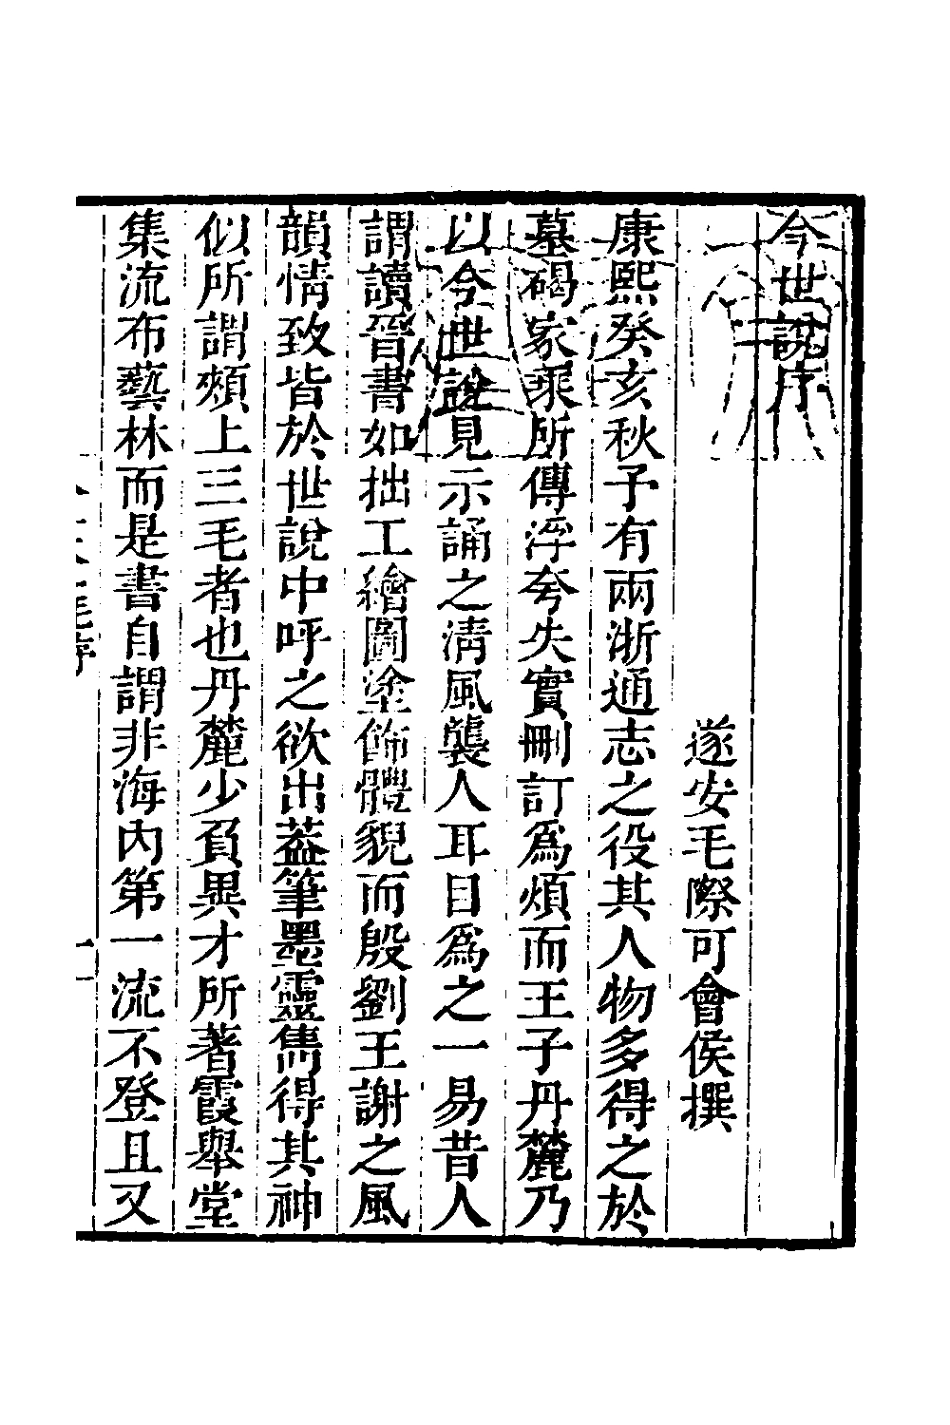 今世說序
遂安毛際可會侯撰
康熙癸亥秋予有兩浙通志之役其人物多得之於
墓碣家乘所傳浮夸失實刪訂爲煩而王子丹麓乃
以今世說見示誦之淸風襲人耳目爲之一易昔人
謂讀晉書如拙工繪圖塗飾體貌而殷劉王謝之風
韻情致皆於世說中呼之欲出葢筆墨靈雋得其神
似所謂頰上三毛者也丹麓少負異才所著霞舉堂
集流布藝林而是書自謂非海內第一流不登且又